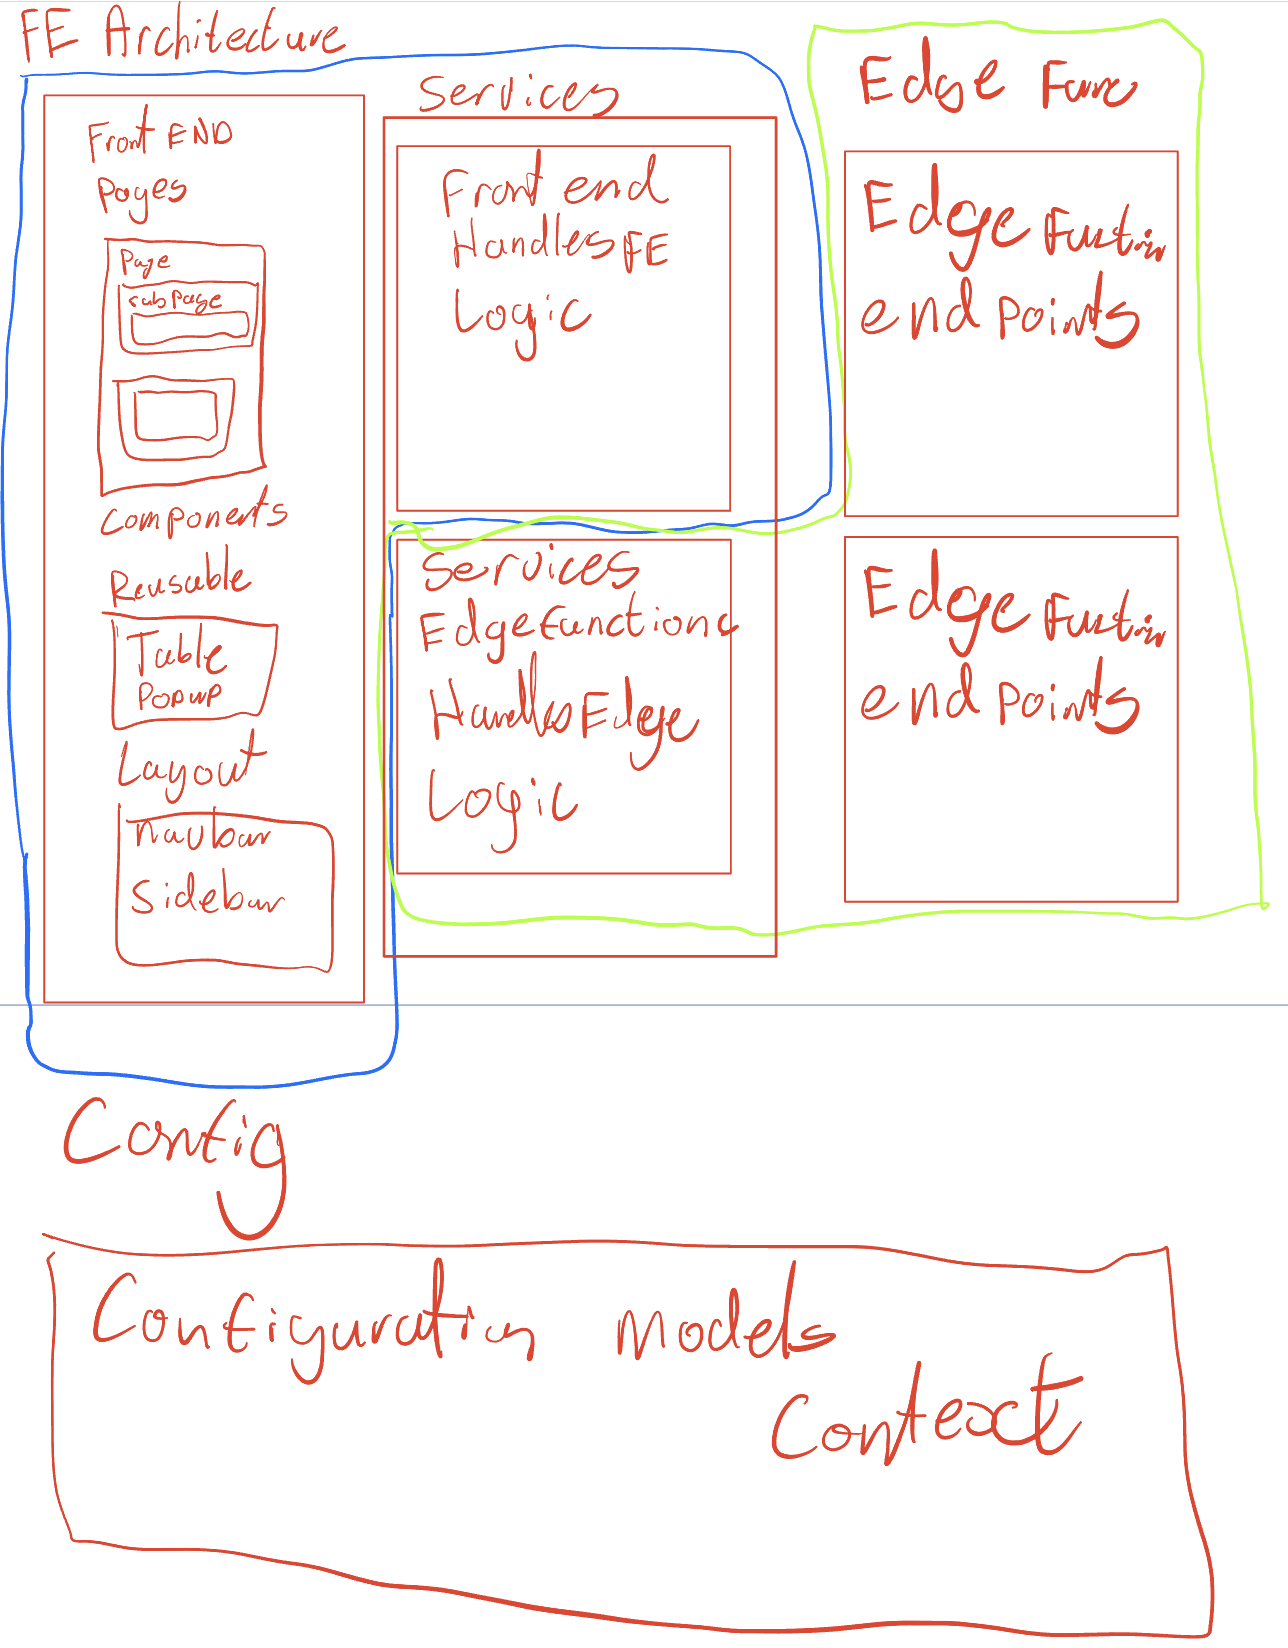 FE Architecture
Front END
Pages
Page
sub Page
Components
Reusable
Table
Popup
Layout
navbar
Sidebar
Services
Front end
Handles FE
Logic
Services
Edge Functions
Handles Edge
Logic
Edge Func
Edge Function
end points
Edge Function
end points
Config
Configuration models
Context